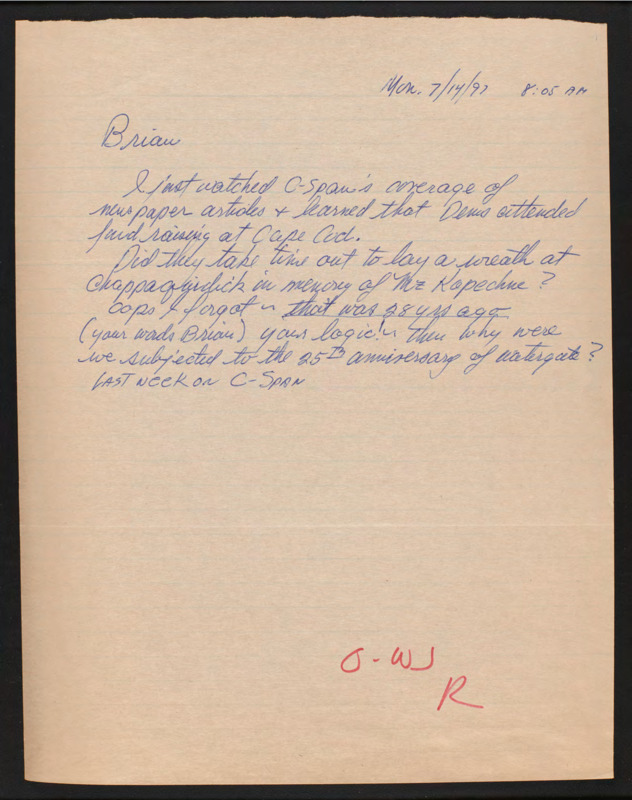 Mon. 7/14/97 8:05 AM
Brian
I just watched C-Span's coverage of
newspaper articles + learned that Dems attended
fund raising at Cape Cod.
Did they take time out to lay a wreath at
Chappaquidick in memory of Mz Kopechne?
oops I forgot ~ that was 28 yrs ago
(your words Brian) your logic! ~ then why were
we subjected to the 25th anniversary of watergate?
LAST WEEK ON C-SPAN
O-WJ
R